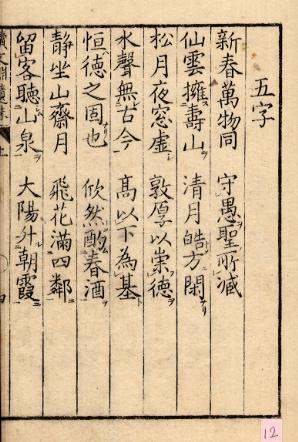 五字
新春萬物同　守愚聖所臧
仙雲擁壽山　清月皓方閑
松月夜窓虚　敦厚以崇徳
水聲無古今　髙以下為基
恒徳之固也　欣然酌春酒
静坐山齋月　飛花滿四鄰
留客聽山泉　大陽升朝霞
上
12